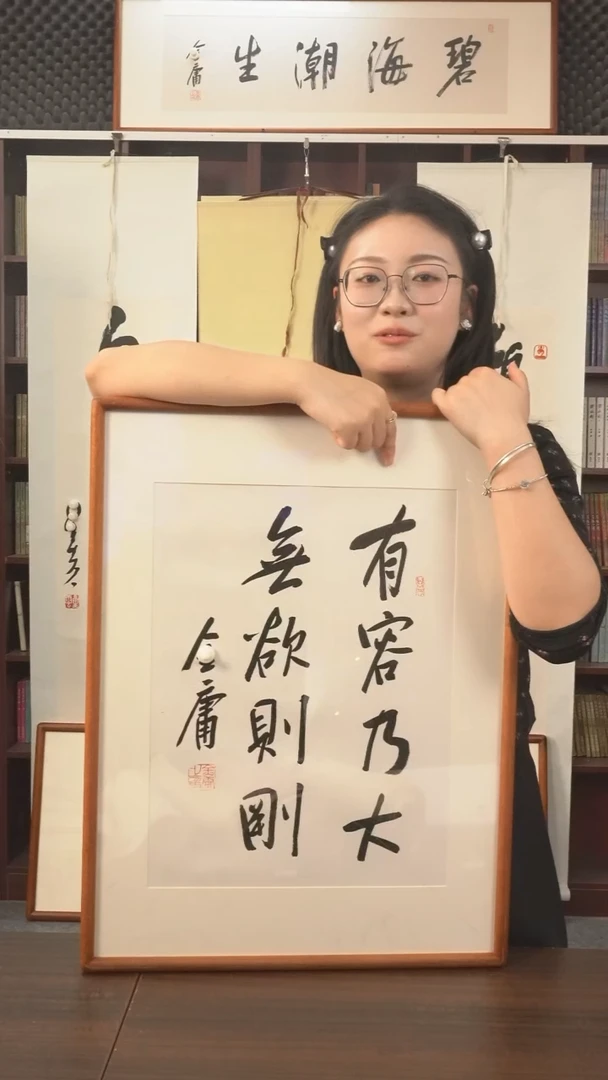 碧海潮生
金庸
有容乃大
無欲則剛
金庸